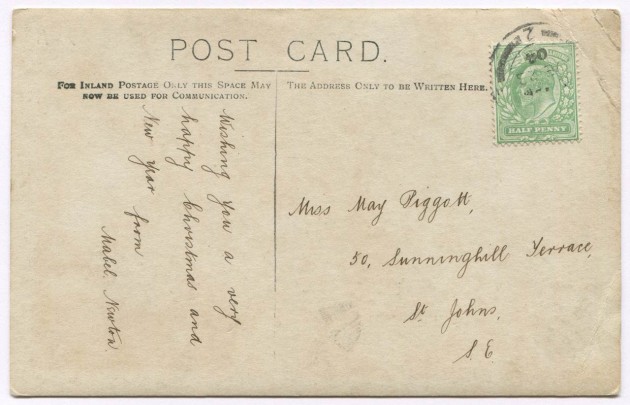 POST CARD.
FOR INLAND POSTAGE ONLY THIS SPACE MAY
NOW BE USED FOR COMMUNICATION.
THE ADDRESS ONLY TO BE WRITTEN HERE.
HALF PENNY
Wishing you a very
happy Christmas and
New Year from
Mabel Newton.
Miss May Piggott,
50, Sunninghill Terrace,
St Johns,
S.E.